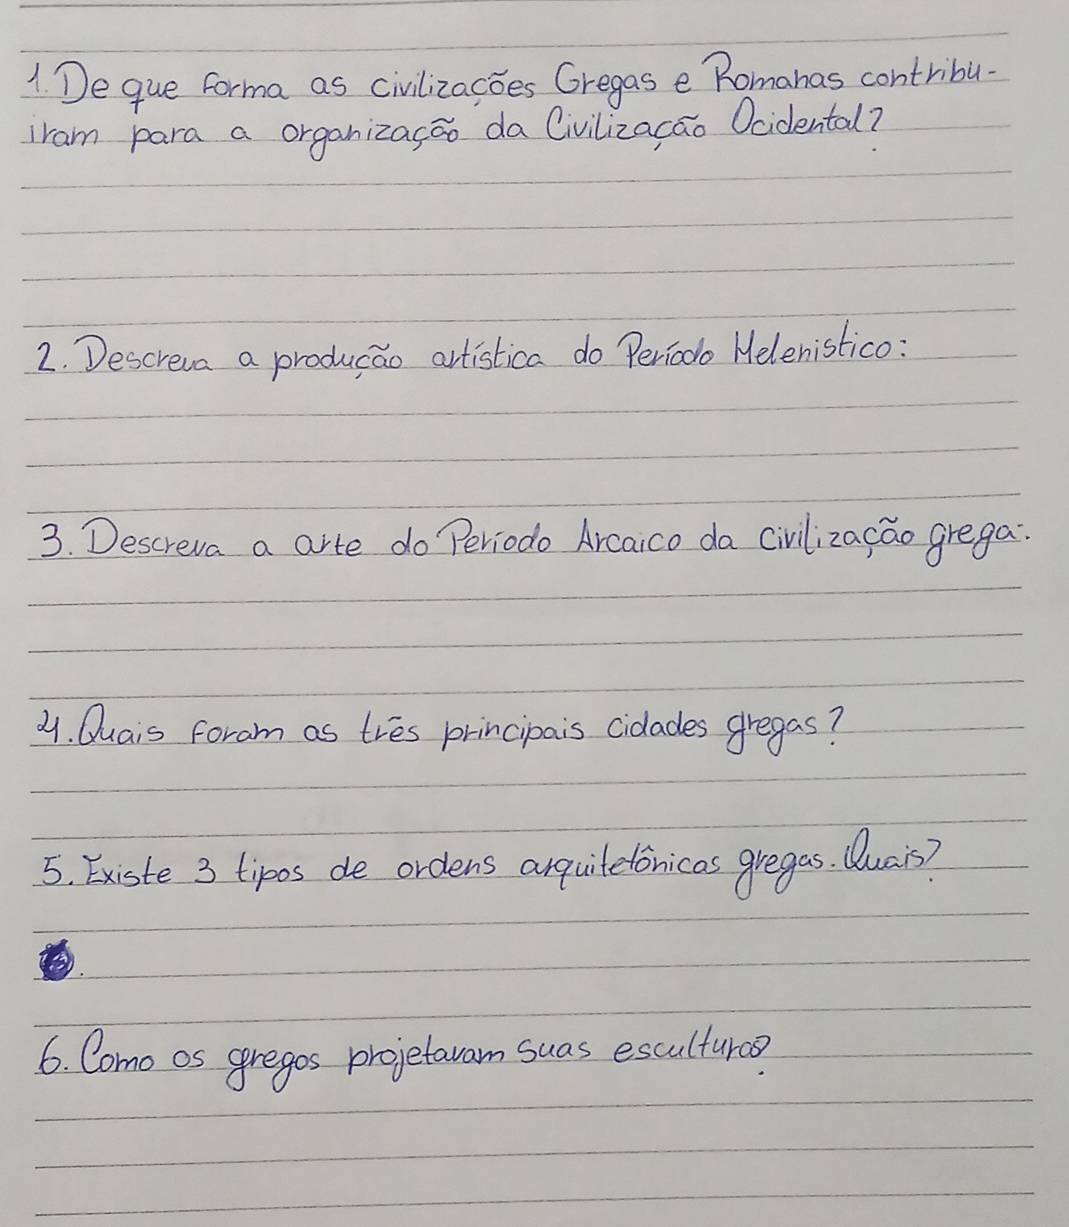 1. De que forma as civilizações Gregas e Romanas contribu-
iram para a organização da Civilização Ocidental?
2. Descreva a produção artística do Período Helenistico:
3. Descreva a arte do Periodo Arcaico da civilização grega:
4. Quais foram as três principais cidades gregas?
5. Existe 3 tipos de ordens arquitetônicas gregas. Quais?
6. Como os gregos projetavam suas esculturas?